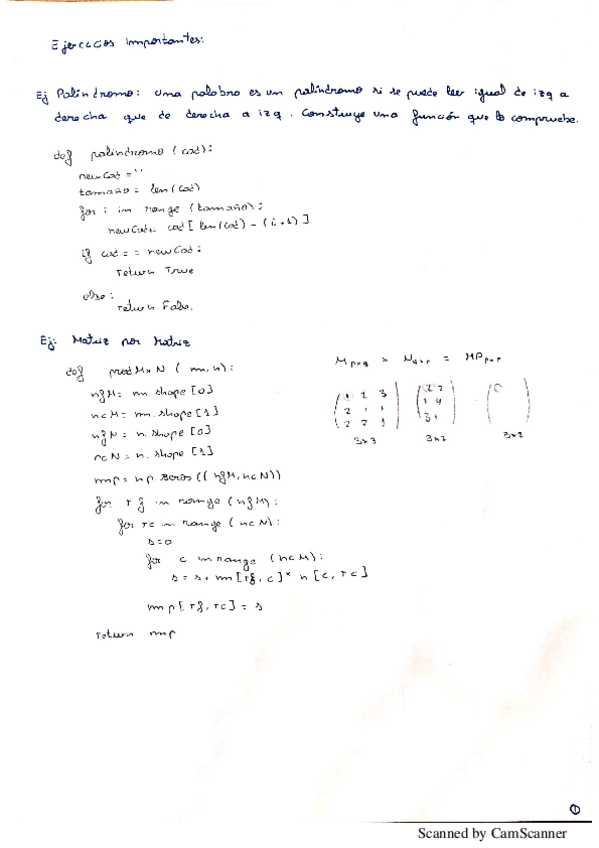 Ejercicios importantes:
Ej Palíndromo: una palabra es un palíndromo si se puede leer igual de izq a
derecha que de derecha a izq. Construye una función que lo compruebe.
def palindromo (cad):
newCad = ''
tamaño = len(cad)
for i in range (tamaño):
newCad= cad[len(cad) - (i+1)]
if cad == newCad:
return True
else:
return False.
Ej: Matriz por Matriz
def prodMxN (m,n):
nfM = m.shape [0]
ncM = m.shape [1]
nfN = n.shape [0]
ncN = n.shape [1]
mp = np.zeros((nfM, ncN))
for rf in range (nfM):
for rc in range (ncN):
s=0
for c in range (ncM):
s = s+m[rf, c]* n[c, rc]
mp[rf, rc] = s
return mp
1 2 3
2 1 1
1 4
3 1
3x3
3x2
①
Scanned by CamScanner